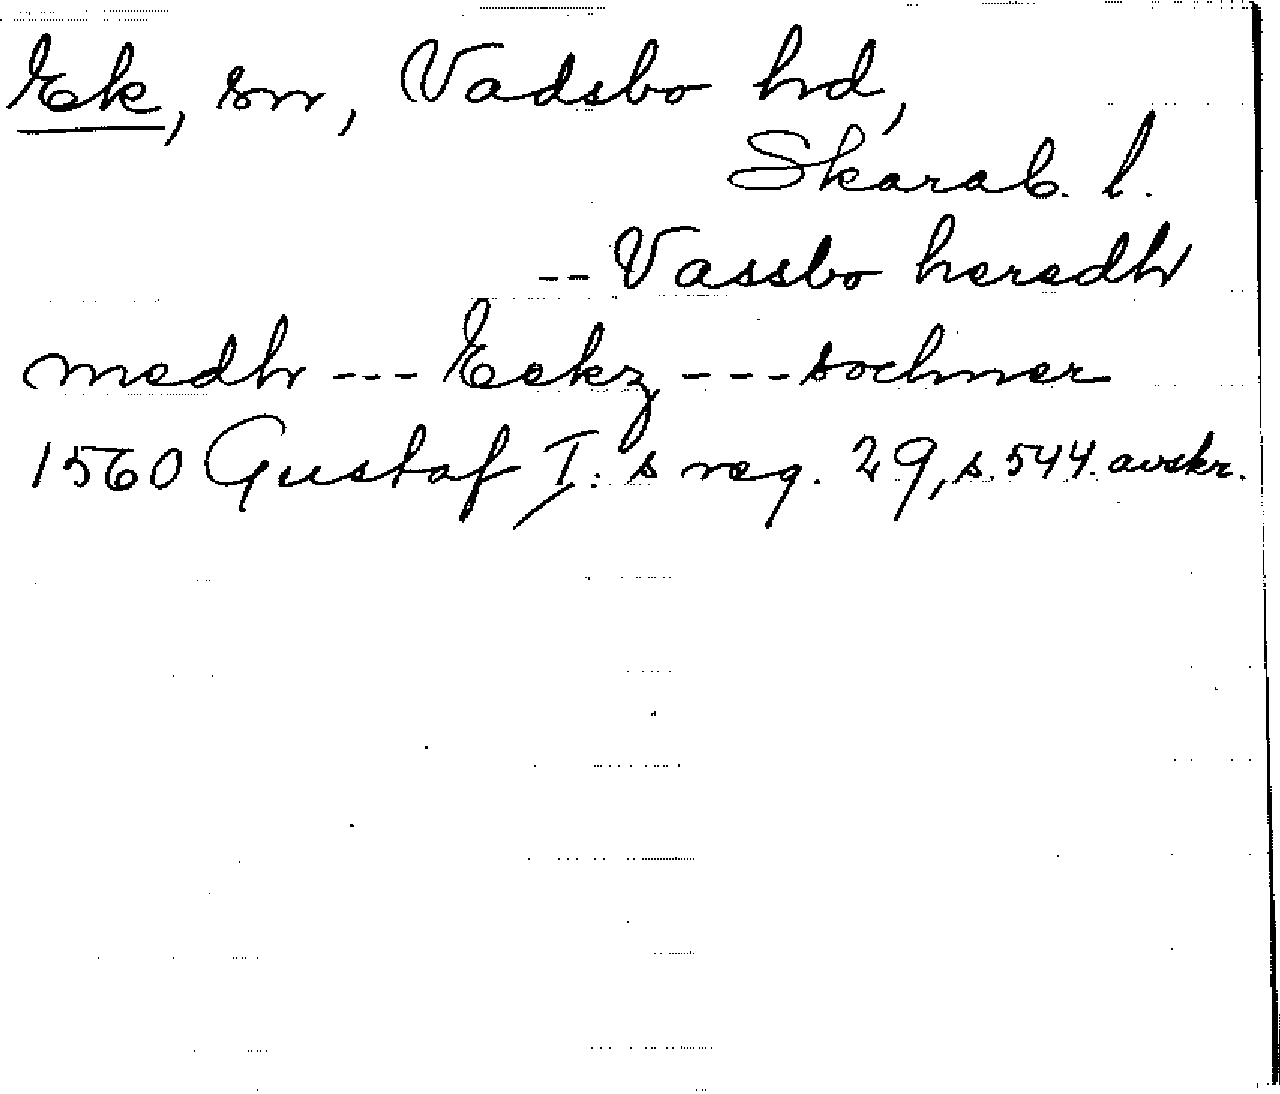 Ek, sn, Vadsbo hd,
Skarab. l.
-- Vassbo heredh
medh --- Eekz --- sochner
1560 Gustaf I: s reg. 29, s. 544. avskr.